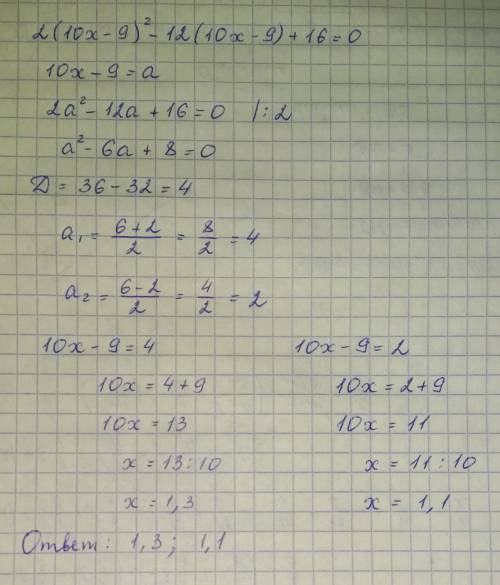 2(10x-9)²-12(10x-9)+16=0
10x-9=a
2a²-12a+16=0 /:2
a²-6a+8=0
Д=36-32=4
a₁=(6+2)/2=8/2=4
a₂=(6-2)/2=4/2=2
10x-9=4 10x-9=2
10x=4+9 10x=2+9
10x=13 10x=11
x=13:10 x=11:10
x=1,3 x=1,1
Ответ: 1,3; 1,1